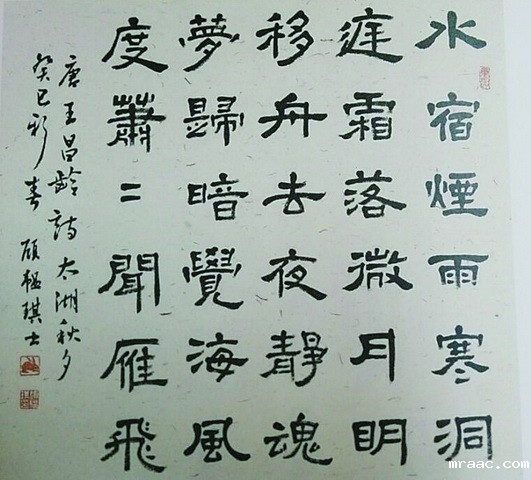 水宿煙雨寒洞
庭霜落微月明
移舟去夜靜魂
夢歸暗覺海風
度蕭二聞雁飛
唐王昌齡詩太湖秋夕
癸巳新春 顧韞琪士
mraac.com